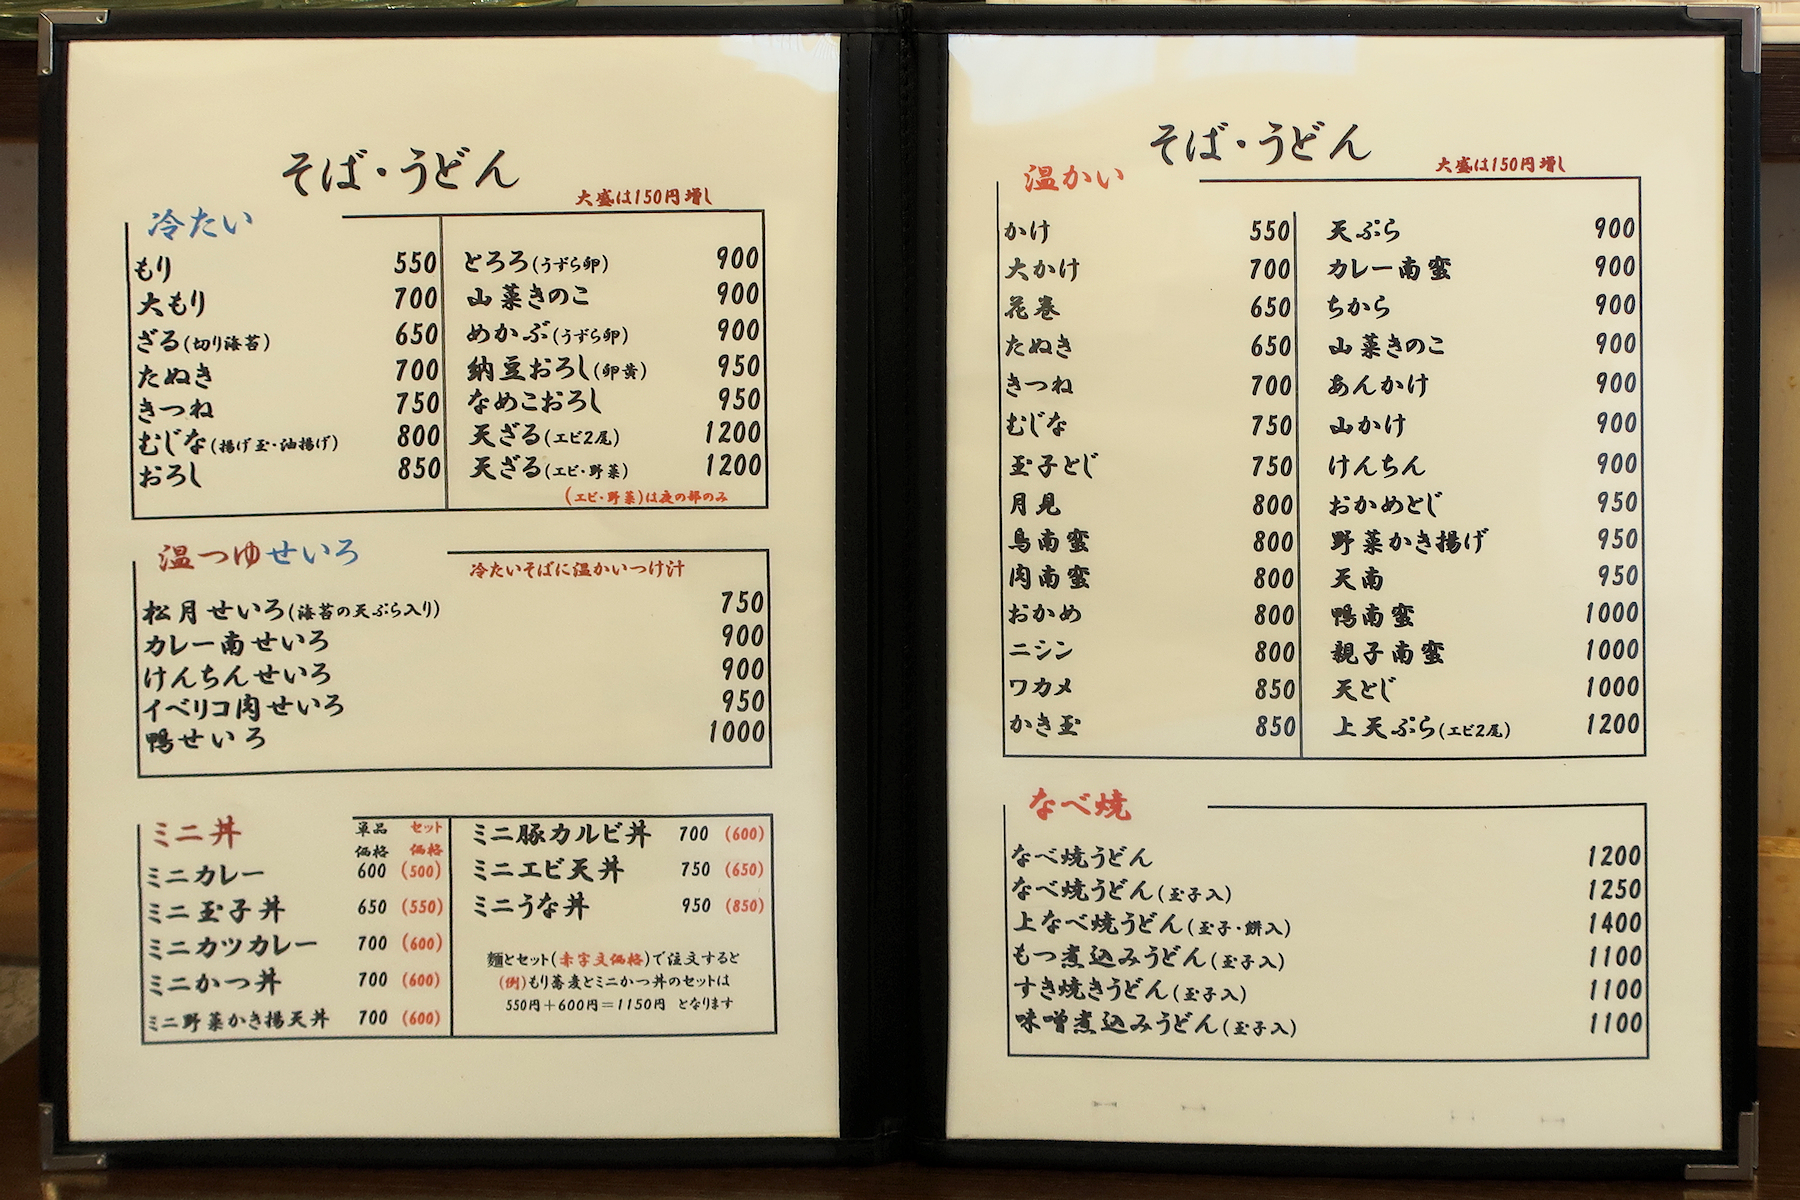 そば・うどん
大盛は150円増し
冷たい
もり 550
大もり 700
ざる(切り海苔) 650
たぬき 700
きつね 750
むじな(揚げ玉・油揚げ) 800
おろし 850
とろろ(うずら卵) 900
山菜きのこ 900
めかぶ(うずら卵) 900
納豆おろし(卵黄) 950
なめこおろし 950
天ざる(エビ2尾) 1200
天ざる(エビ・野菜) 1200
(エビ・野菜)は夜の部のみ
温つゆせいろ
冷たいそばに温かいつけ汁
松月せいろ(海苔の天ぷら入り) 750
カレー南せいろ 900
けんちんせいろ 900
イベリコ肉せいろ 950
鴨せいろ 1000
ミニ丼
単品価格 セット価格
ミニカレー 600 (500)
ミニ玉子丼 650 (550)
ミニカツカレー 700 (600)
ミニかつ丼 700 (600)
ミニ野菜かき揚天丼 700 (600)
ミニ豚カルビ丼 700 (600)
ミニエビ天丼 750 (650)
ミニうな丼 950 (850)
麺とセット(赤字文価格)で注文すると
(例)もり蕎麦とミニかつ丼のセットは
550円+600円=1150円 となります
そば・うどん
大盛は150円増し
温かい
かけ 550
大かけ 700
花巻 650
たぬき 650
きつね 700
むじな 750
玉子とじ 750
月見 800
鳥南蛮 800
肉南蛮 800
おかめ 800
ニシン 800
ワカメ 850
かき玉 850
天ぷら 900
カレー南蛮 900
ちから 900
山菜きのこ 900
あんかけ 900
山かけ 900
けんちん 900
おかめとじ 950
野菜かき揚げ 950
天南 950
鴨南蛮 1000
親子南蛮 1000
天とじ 1000
上天ぷら(エビ2尾) 1200
なべ焼
なべ焼うどん 1200
なべ焼うどん(玉子入) 1250
上なべ焼うどん(玉子・餅入) 1400
もつ煮込みうどん(玉子入) 1100
すき焼きうどん(玉子入) 1100
味噌煮込みうどん(玉子入) 1100